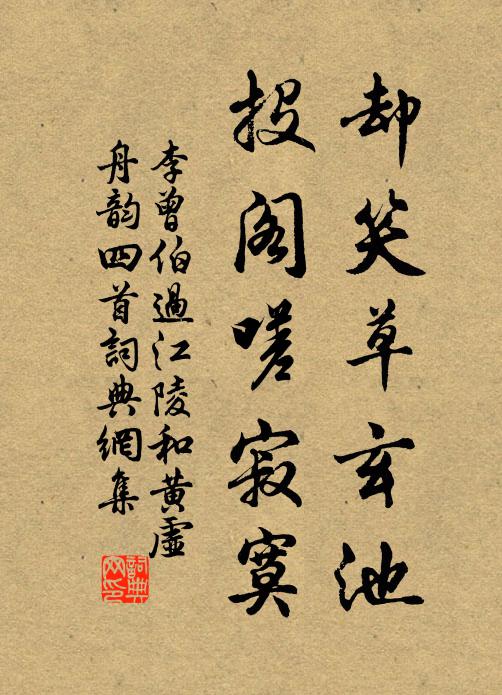 却笑草玄池
投阁嗟寂寞
李曾伯過江陵和黄虛
舟韵四首詞典網集
詞典
网印